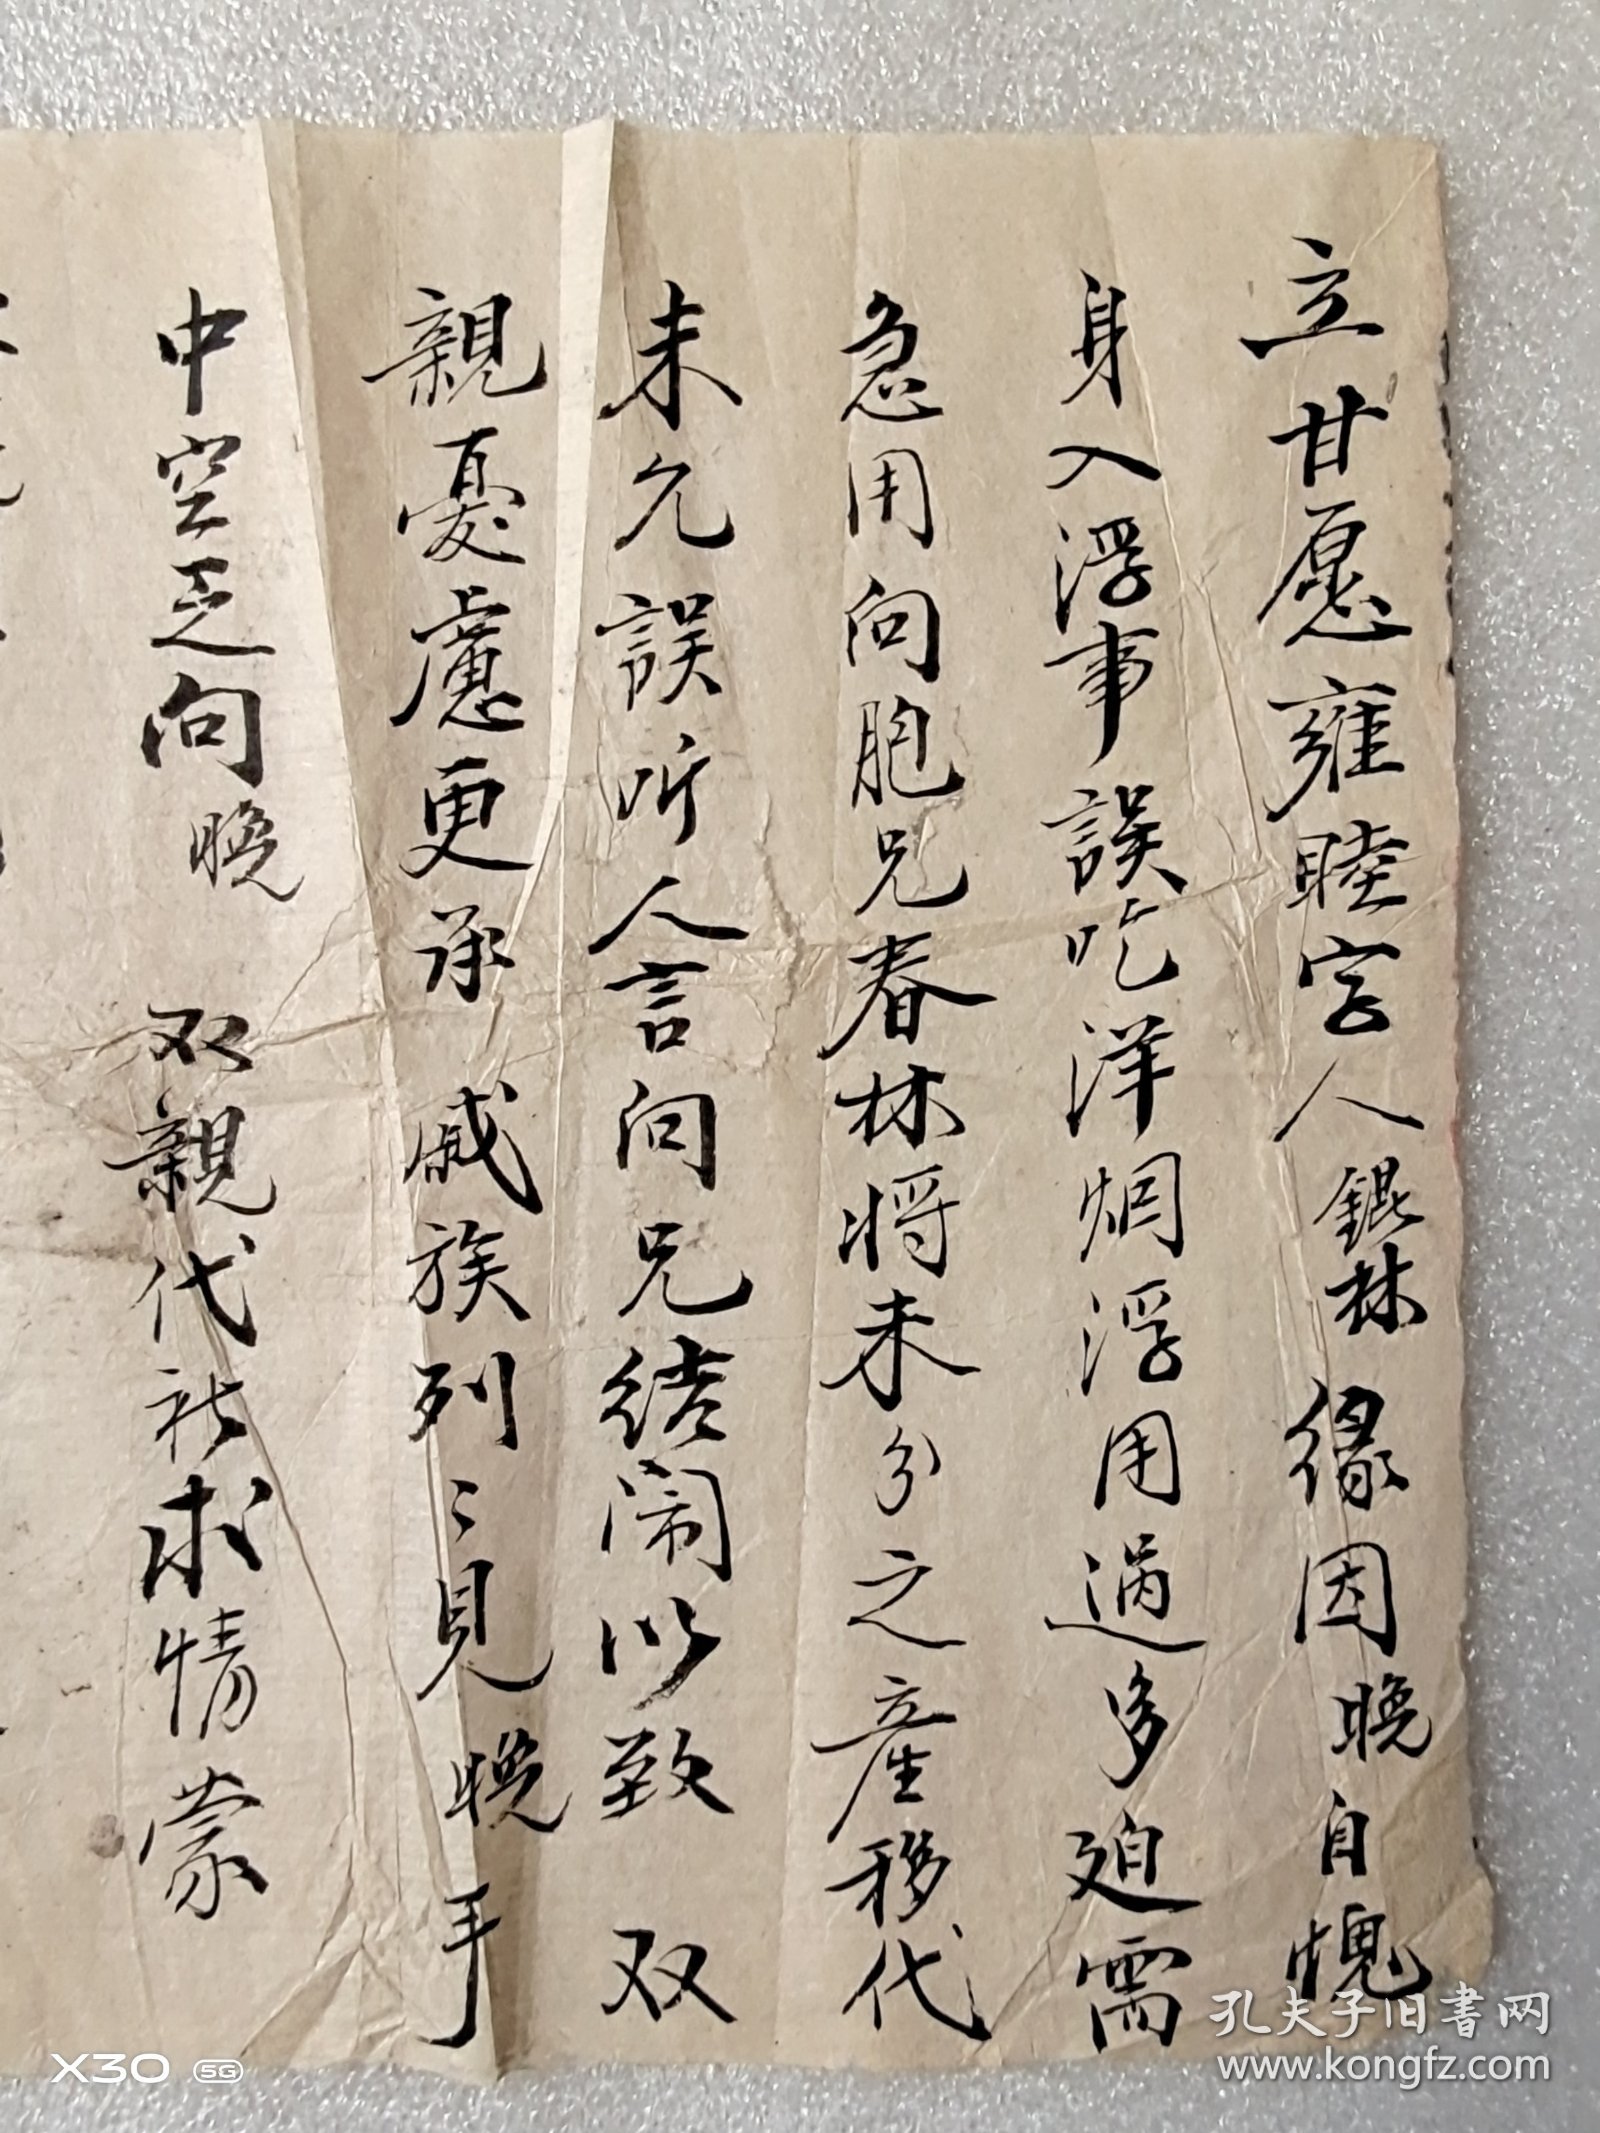 立甘愿雍睦字人錕林 缘因晚自愧
身入浮事誤吃洋烟浮用過多迫需
急用向胞兄春林将未分之產移代
未允誤听人言向兄结闹以致 双
親憂慮更承 戚族列〻見晚手
中空乏向晚 双親代祈求情蒙
孔夫子旧書网
www.kongfz.com
X30 5G